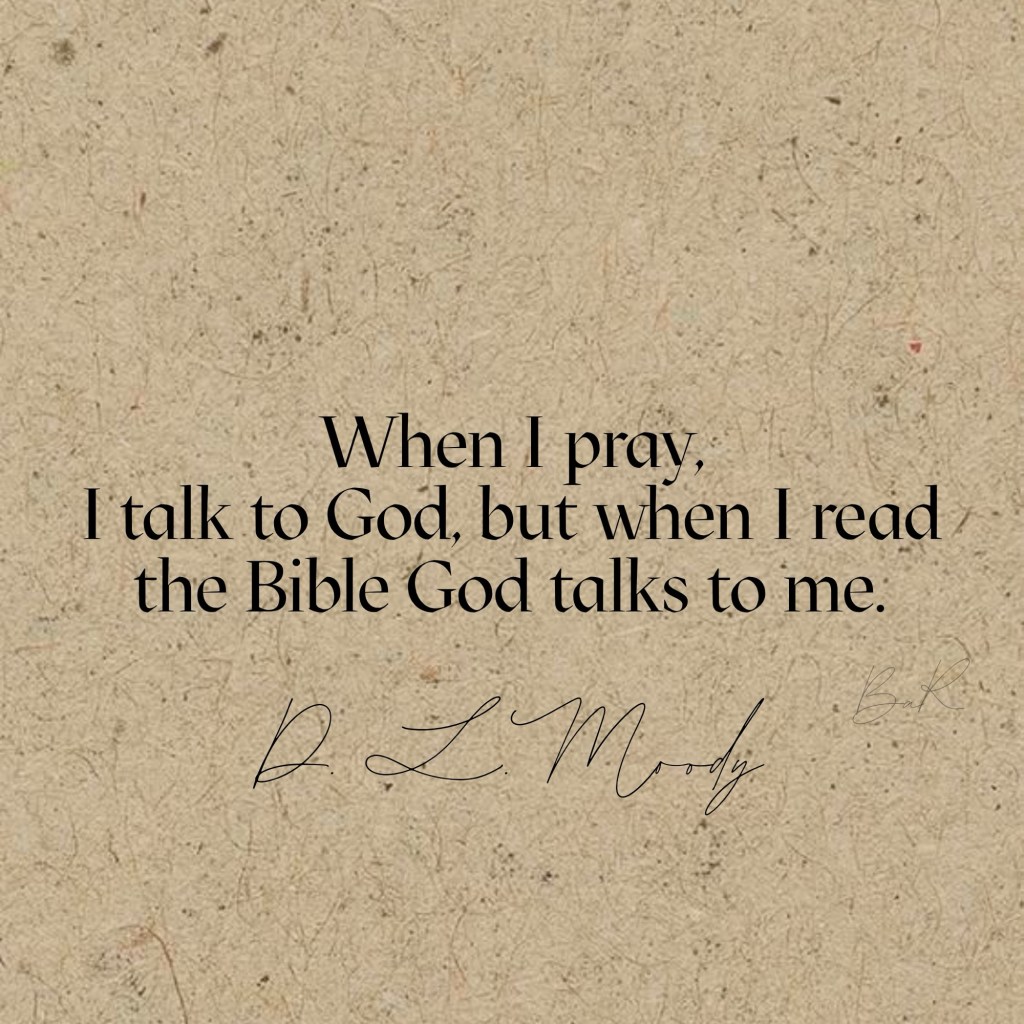 When I pray,
I talk to God, but when I read
the Bible God talks to me.
BaR
D. L. Moody